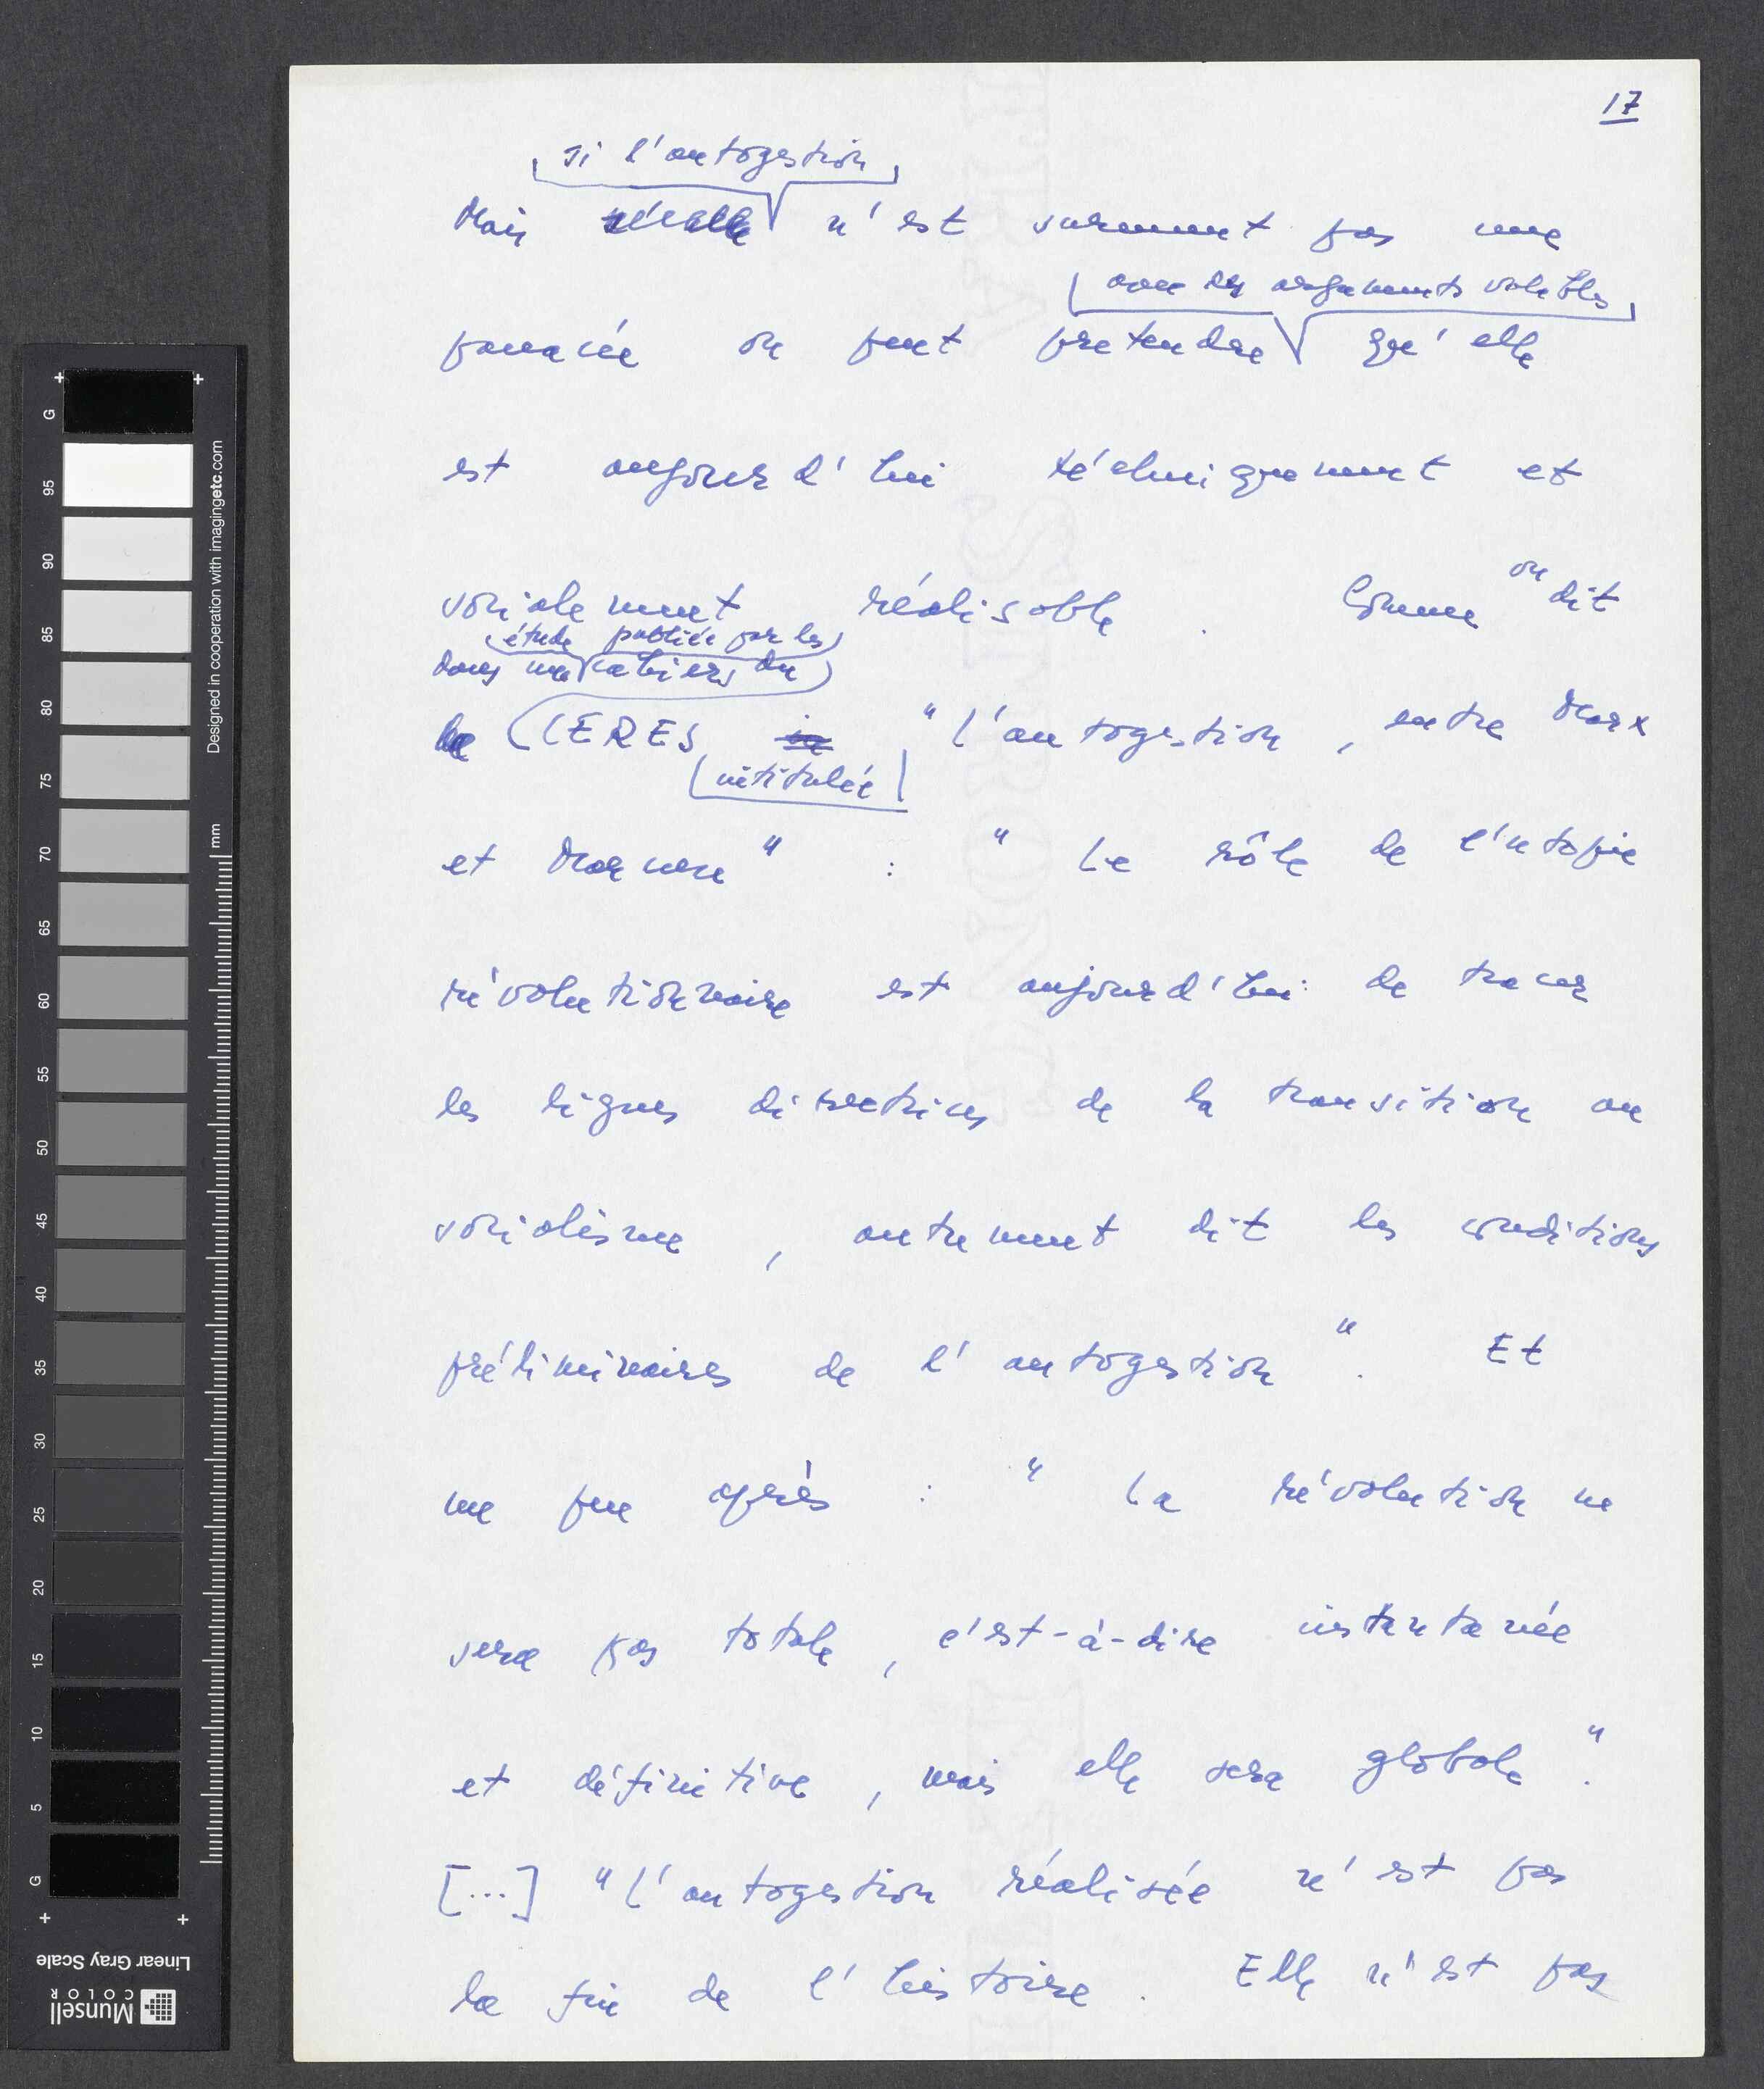 17
si l'autogestion
Mais n'est surement pas une
avec des arguments valables
panacée on peut pretendre qu'elle
est aujourd'hui téchniquement et
socialement réalisable . Comme on dit
étude publiée par les
dans une cahiers du
CERES "l'autogestion, entre Marx
intitulée
et Marcuse" : "Le rôle de l'utopie
révolutionnaire est aujourd'hui de tracer
les lignes directrices de la transition au
socialisme , autrement dit les conditions
préliminaires de l'autogestion". Et
un peu après : "La révolution ne
sera pas totale, c'est-à-dire instantanée
et définitive, mais elle sera globale".
[...] "L'autogestion réalisée n'est pas
la fin de l'histoire . Elle n'est pas
G
95
90
85
80
75
70
65
60
55
50
45
40
35
30
25
20
15
10
5
G
Designed in cooperation with imagingetc.com
mm
Linear Gray Scale
Munsell
COLOR